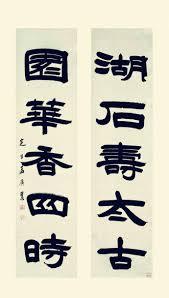 湖石壽太古
園華香四時